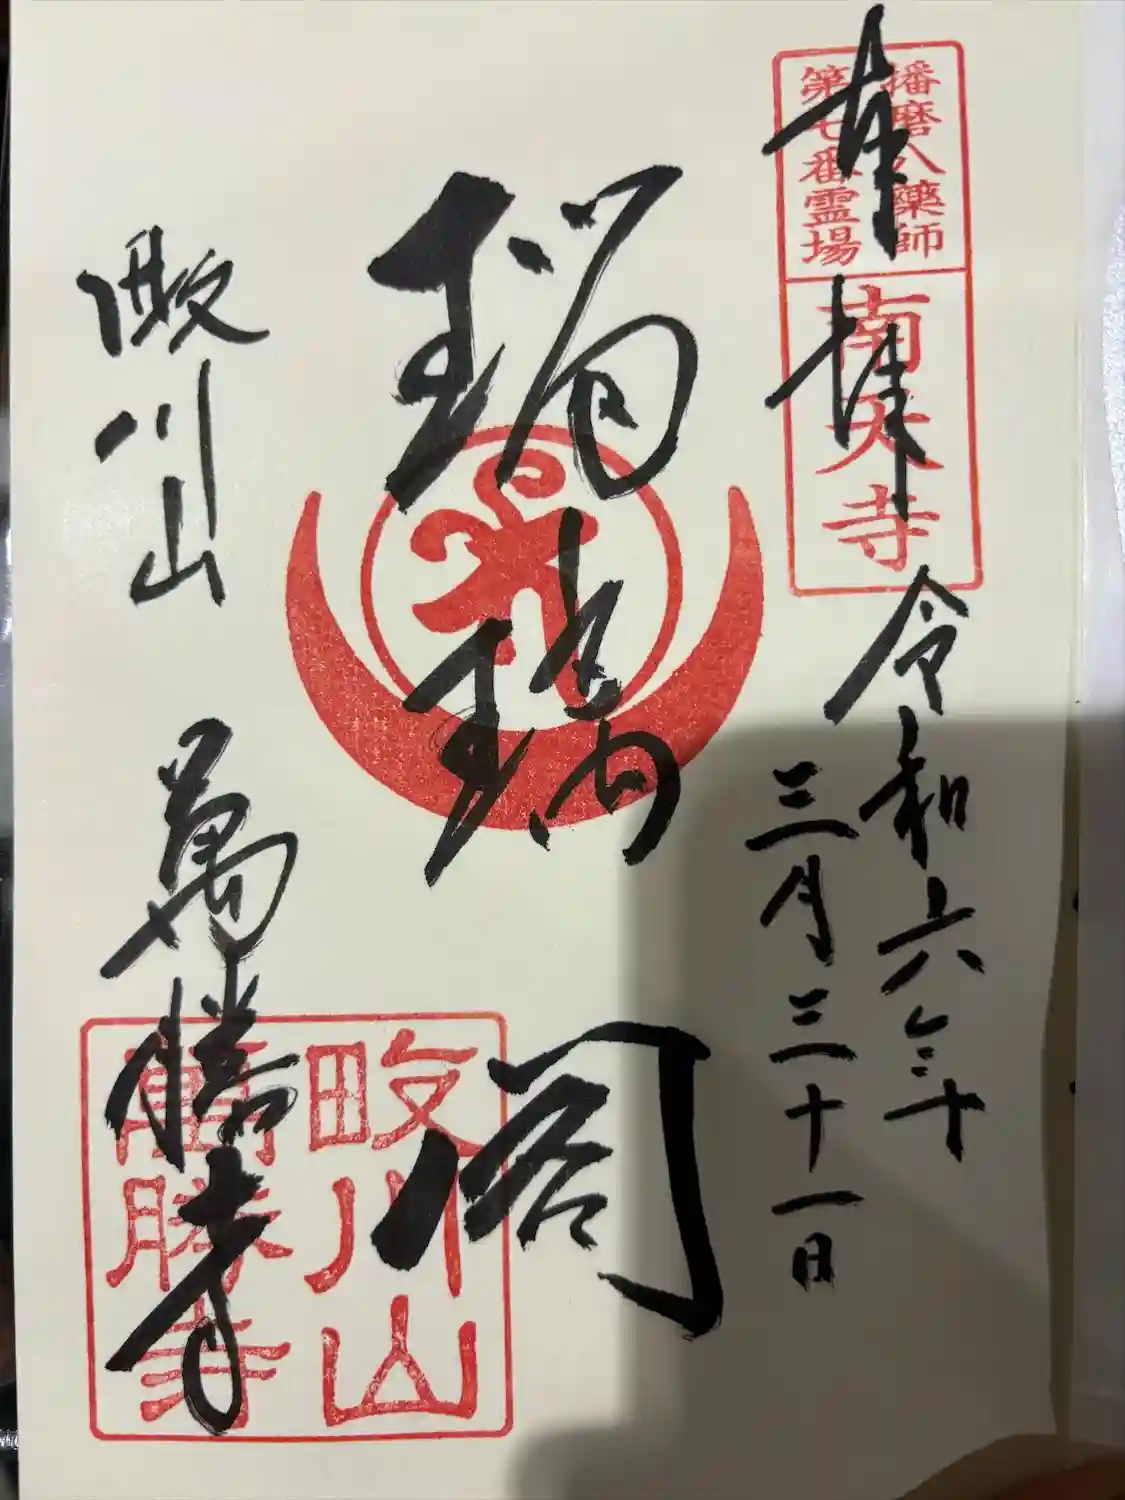 奉拝
播磨八藥師
第七番霊場
令和六年
三月三十一日
瑠璃閣
畋川山
萬勝寺
畋川山
萬勝寺